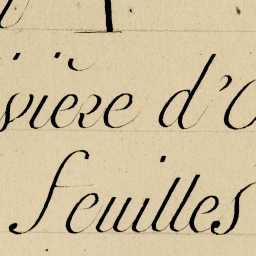 vière d'O
feuilles